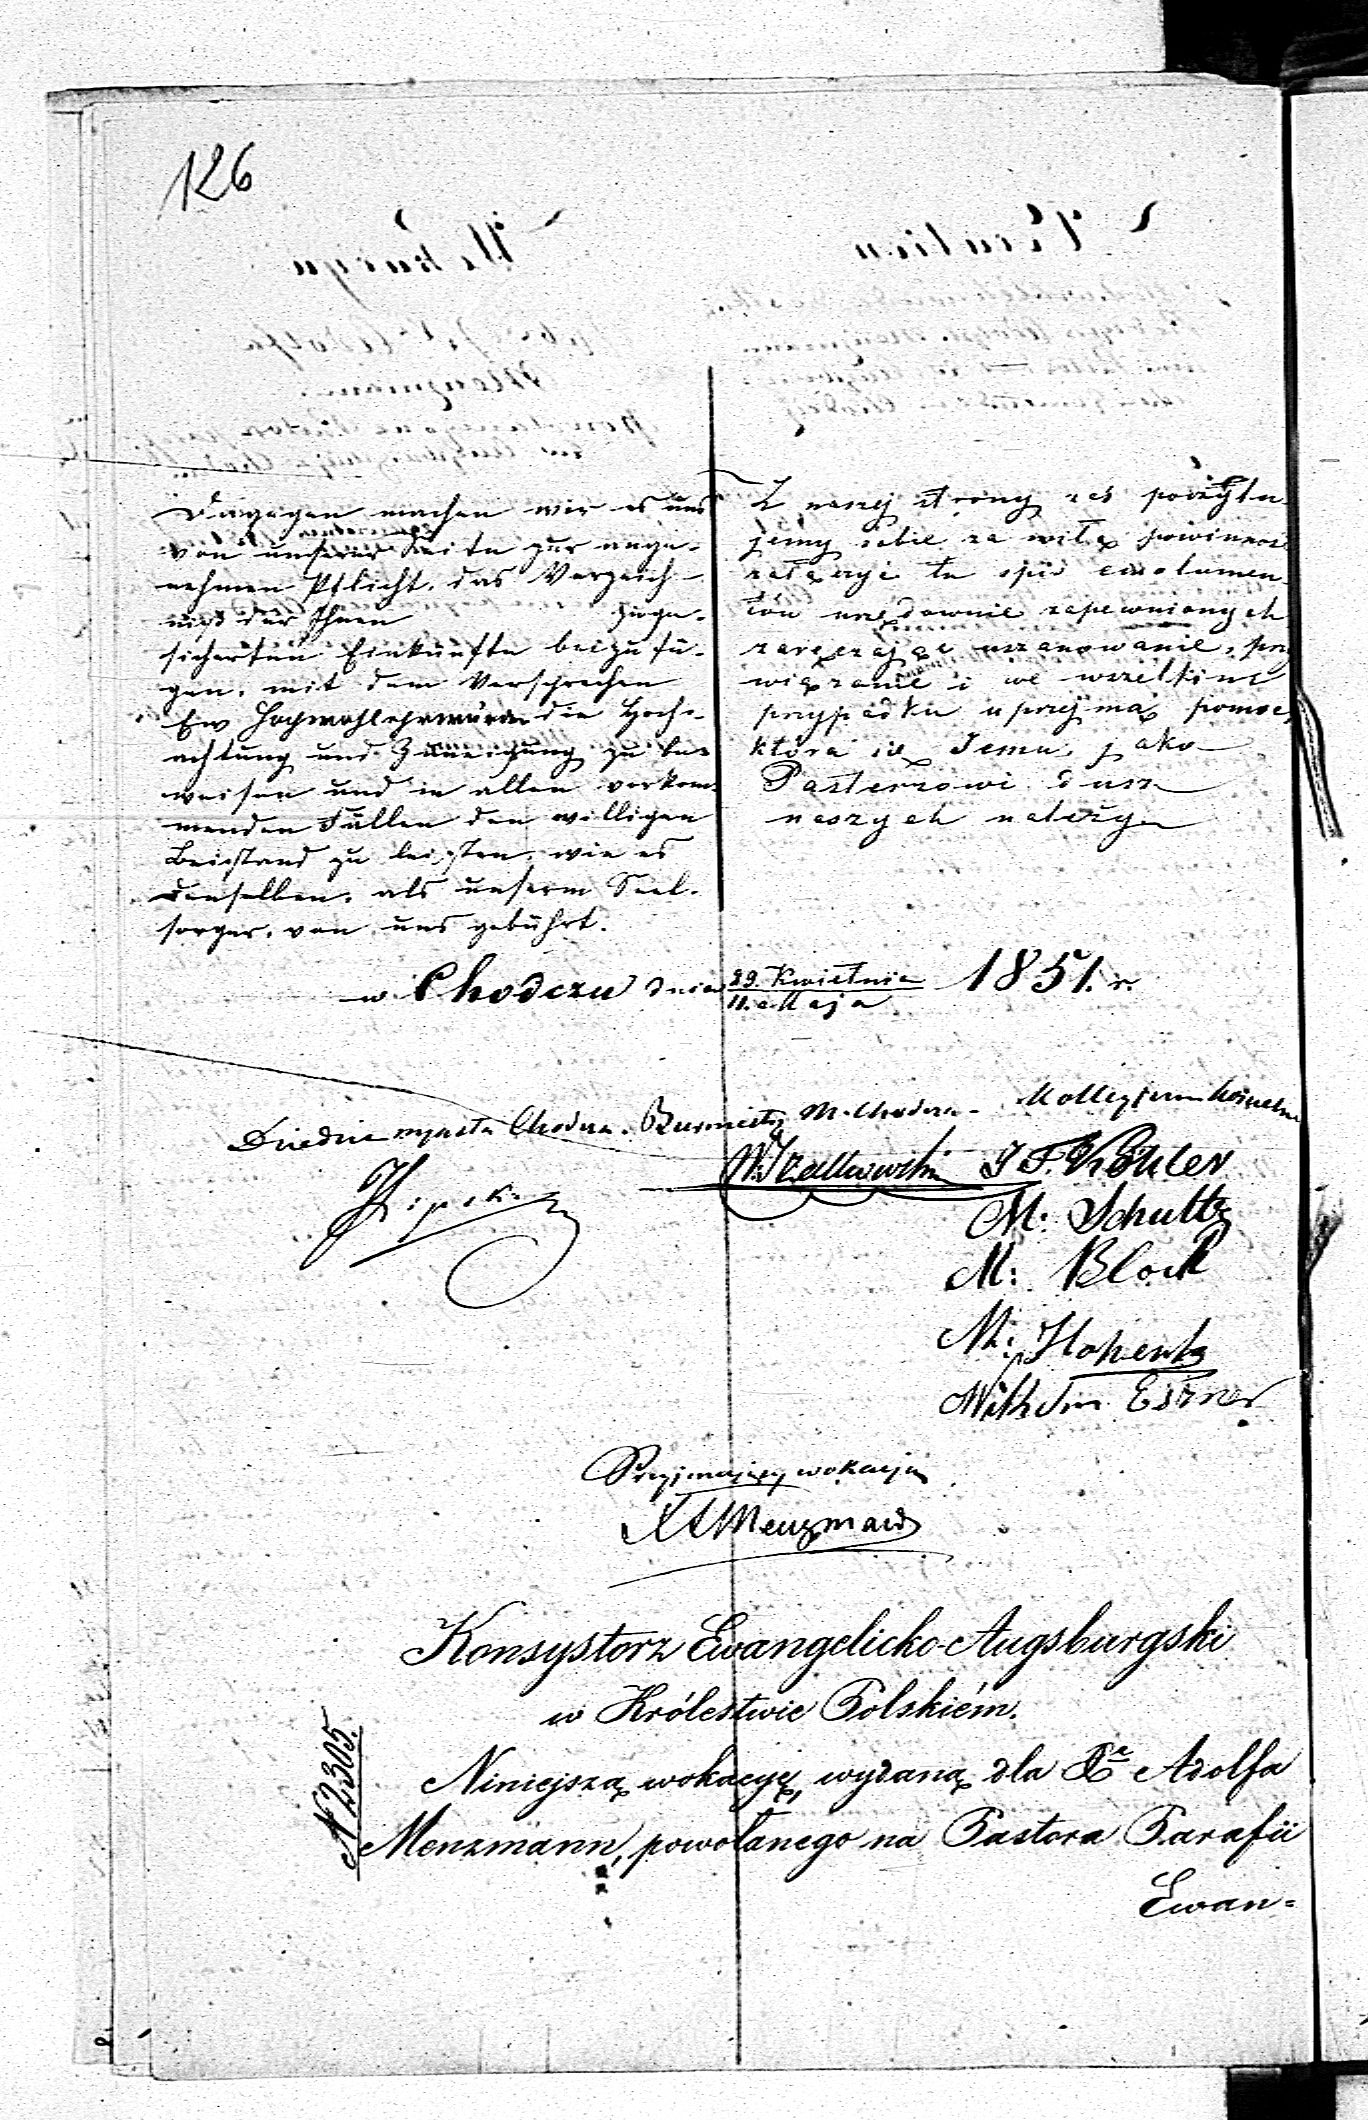 126
Dagegen machen wir es uns
von unserer Seite zur ange-
nehmen Pflicht, das Verzeich-
niß der Ihnen zuge-
sicherten Einkünfte beizufü-
gen, mit dem Versprechen
Ew Hochwohlehrwürden die Hoch-
achtung und Zuneigung zu be-
weisen und in allen vorkom-
menden Fällen den willigen
Beistand zu leisten, wie es
denselben, als unserm Seel-
sorger, von uns gebührt.
Z naszej strony zaś poczytu
jemy sobie za miłą powinność
załączyć tu spis emolumen-
tów urzędownie zapewnionych
zaręczając uszanowanie, przy
wiązanie i we wszelkim
przypadku uprzejmą pomoc,
która się Jemu, jako
Pasterzowi dusz
naszych należy.
w Chodczu dnia 29. Kwietnia / 11. Maja 1851. r.
Dziedzic myasta Chodcza. Burmistrz M. Chodcza. Kollegium Kościelne
J. F. Köhler
M: Schultz
M: Block
M:
Wilhelm
Przyimujący wokacją
Menzmann
Konsystorz Ewangelicko-Augsburgski
w Królestwie Polskiém.
N 2305.
Niniejszą wokacyę, wydaną dla Xa Adolfa
Menzmann, powołanego na Pastora Parafii
Ewan-